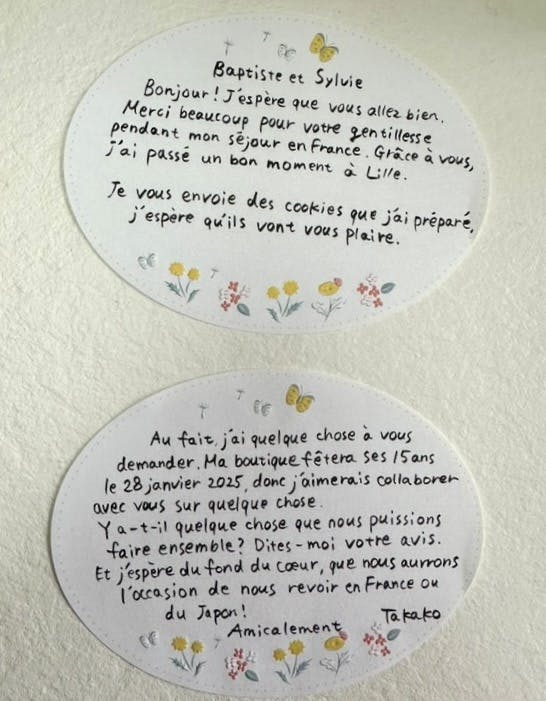 Baptiste et Sylvie
Bonjour! J'espère que vous allez bien.
Merci beaucoup pour votre gentillesse
pendant mon séjour en France. Grâce à vous,
j'ai passé un bon moment à Lille.
Je vous envoie des cookies que j'ai préparé,
j'espère qu'ils vont vous plaire.
Au fait, j'ai quelque chose à vous
demander. Ma boutique fêtera ses 15 ans
le 28 janvier 2025, donc j'aimerais collaborer
avec vous sur quelque chose.
Y a-t-il quelque chose que nous puissions
faire ensemble? Dites-moi votre avis.
Et j'espère du fond du cœur, que nous aurrons
l'occasion de nous revoir en France ou
du Japon!
Amicalement Takako